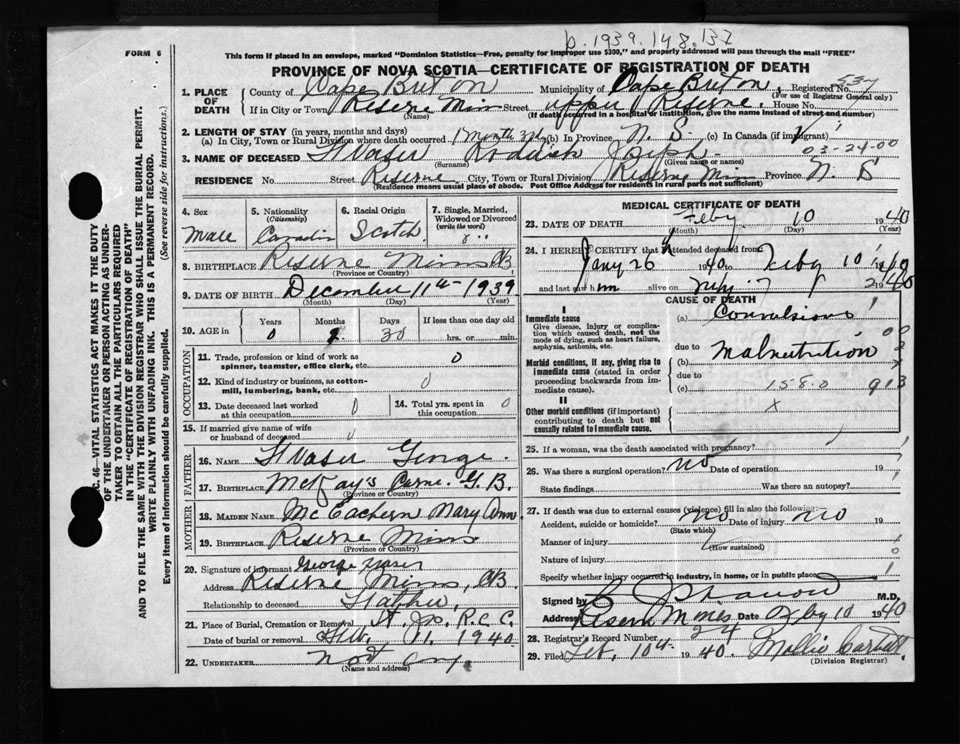 p. 1939. 148.132
FORM 6
This form if placed in an envelope, marked "Dominion Statistics—Free, penalty for improper use $300," and properly addressed will pass through the mail "FREE"
PROVINCE OF NOVA SCOTIA—CERTIFICATE OF REGISTRATION OF DEATH
C. 46—VITAL STATISTICS ACT MAKES IT THE DUTY
OF THE UNDERTAKER OR PERSON ACTING AS UNDER-
TAKER TO OBTAIN ALL THE PARTICULARS REQUIRED
IN THE "CERTIFICATE OF REGISTRATION OF DEATH"
AND TO FILE THE SAME WITH THE DIVISION REGISTRAR WHO SHALL ISSUE THE BURIAL PERMIT.
WRITE PLAINLY WITH UNFADING INK. THIS IS A PERMANENT RECORD.
Every item of information should be carefully supplied. (See reverse side for instructions.)
1. PLACE OF DEATH County of Cape Breton Municipality of Cape Breton Registered No. 537
(For use of Registrar General only)
If in City or Town Reserve Mines Street Upper Reserve House No.
(Name) (If death occurred in a hospital or institution, give the name instead of street and number)
2. LENGTH OF STAY (in years, months and days)
(a) In City, Town or Rural Division where death occurred 1 month 30 (b) In Province N. S. (c) In Canada (if immigrant)
03-24-00
3. NAME OF DECEASED Fraser Rodrick Joseph
(Surname) (Given name or names)
RESIDENCE No. Street Reserve City, Town or Rural Division Reserve Mines Province N. S
(Residence means usual place of abode. Post Office Address for residents in rural parts not sufficient)
4. Sex 5. Nationality 6. Racial Origin 7. Single, Married,
(Citizenship) Widowed or Divorced
(write the word)
Male Canadian Scotch S
8. BIRTHPLACE Reserve Mines CB
(Province or Country)
9. DATE OF BIRTH December 11th 1939
(Month) (Day) (Year)
10. AGE in Years Months Days If less than one day old
0 1 30 hrs. or min.
OCCUPATION
11. Trade, profession or kind of work as 0
spinner, teamster, office clerk, etc.
12. Kind of industry or business, as cotton- 0
mill, lumbering, bank, etc.
13. Date deceased last worked 0 14. Total yrs. spent in 0
at this occupation this occupation
15. If married give name of wife
or husband of deceased
FATHER
16. NAME Fraser George
17. BIRTHPLACE McKay's Corner G. B.
(Province or Country)
MOTHER
18. MAIDEN NAME McEachern Mary Ann
19. BIRTHPLACE Reserve Mines
(Province or Country)
20. Signature of informant George Fraser
Address Reserve Mines, CB
Relationship to deceased Father
21. Place of Burial, Cremation or Removal St. Jo. R.C.C.
Date of burial or removal Feb. 11. 1940
22. UNDERTAKER Not any
(Name and address)
MEDICAL CERTIFICATE OF DEATH
23. DATE OF DEATH Feby 10 1940
(Month) (Day) (Year)
24. I HEREBY CERTIFY that I attended deceased from
Jany 26 1940 to Feby 10 1940
and last saw him alive on Feby 7 1940
CAUSE OF DEATH
I
Immediate cause (a) Convulsions
Give disease, injury or complica-
tion which caused death, not the
mode of dying, such as heart failure,
asphyxia, asthenia, etc. due to Malnutrition
Morbid conditions, if any, giving rise to (b)
immediate cause (stated in order
proceeding backwards from im-
mediate cause). due to
(c) 158.0 913
II
Other morbid conditions (if important) x
contributing to death but not
causally related to immediate cause.
25. If a woman, was the death associated with pregnancy?
26. Was there a surgical operation? no Date of operation 19
State findings Was there an autopsy?
27. If death was due to external causes (violence) fill in also the following:
Accident, suicide or homicide? no Date of injury no 19
(State which)
Manner of injury
(How sustained)
Nature of injury
Specify whether injury occurred in industry, in home, or in public place
Signed by M.D.
Address Reserve Mines Date Feby 10 1940
28. Registrar's Record Number 24
29. Filed Feb. 10th 1940. Mollie
(Division Registrar)